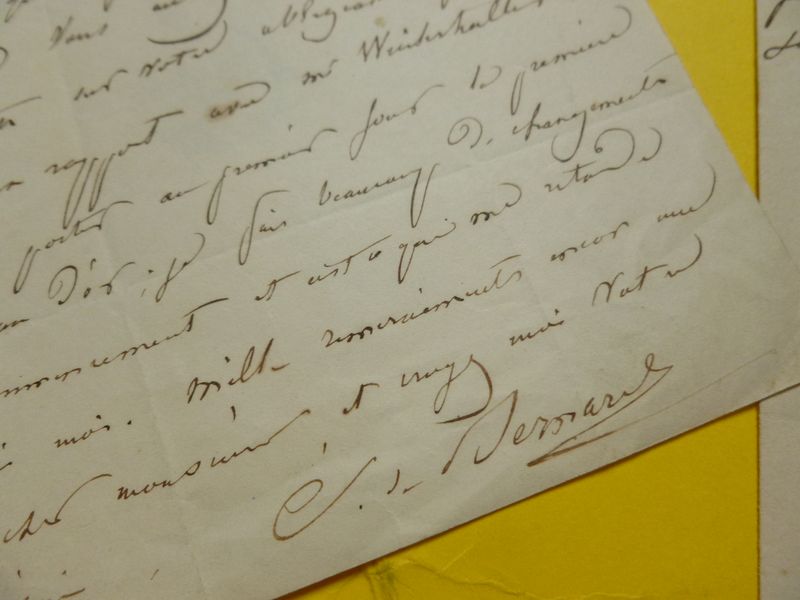 vous
sur votre
rapport avec mr Winterhalter
porter au premier jour la première
d'or ; je fais beaucoup de changements
et c'est ce qui me retarde
moi. Mille remerciements encor une
cher monsieur, et croyez moi votre
C. de Bernard